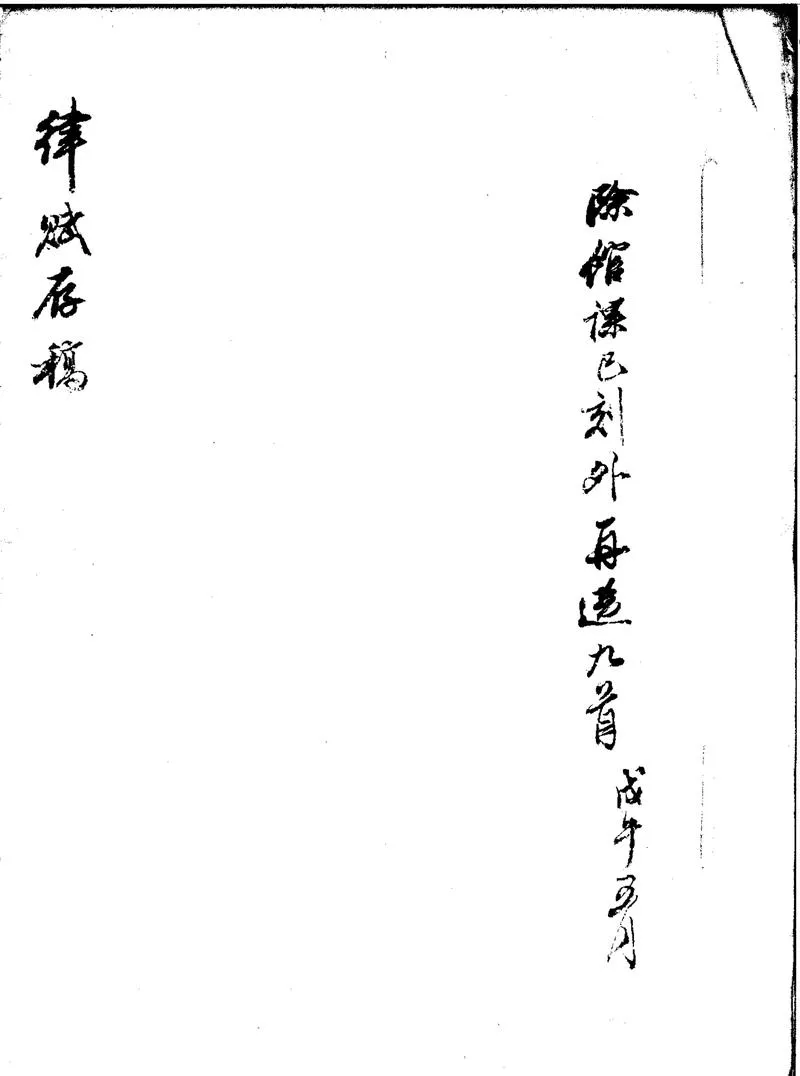 除館課已刻外再選九首
戊午五月
律賦存稿